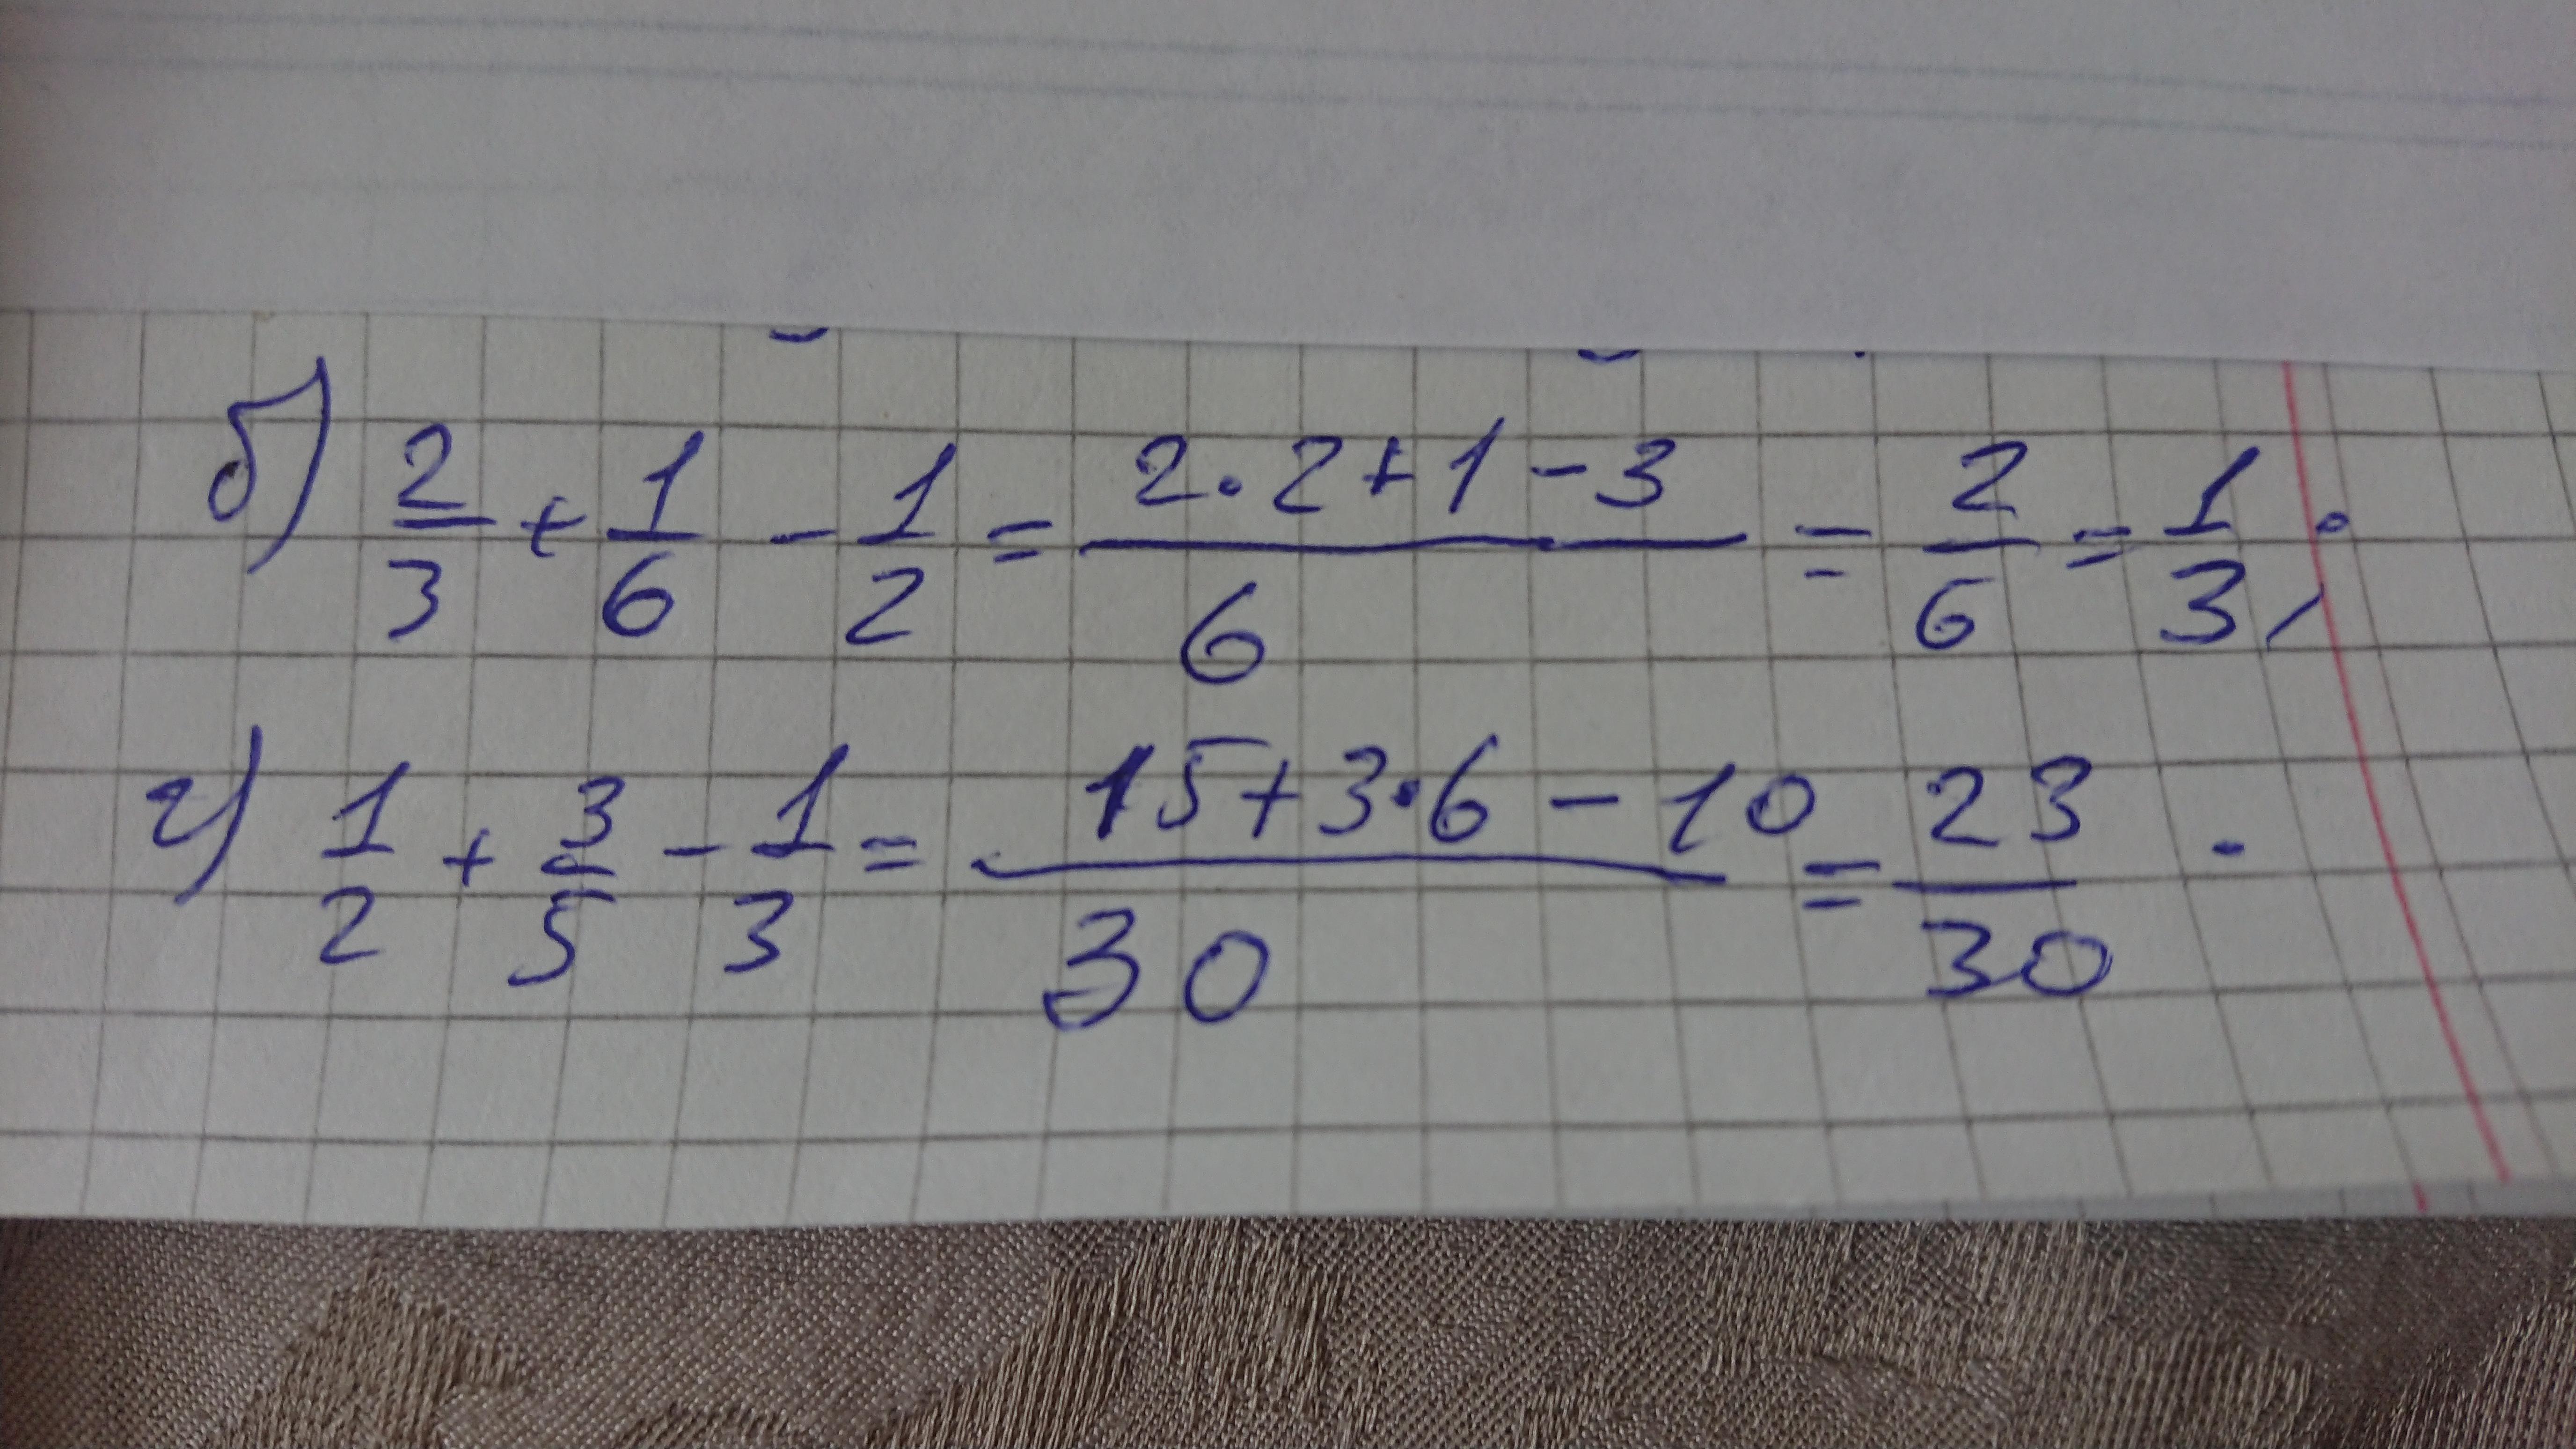 б) 2/3 + 1/6 - 1/2 = (2·2+1-3)/6 = 2/6 = 1/3;
г) 1/2 + 3/5 - 1/3 = (15+3·6-10)/30 = 23/30.